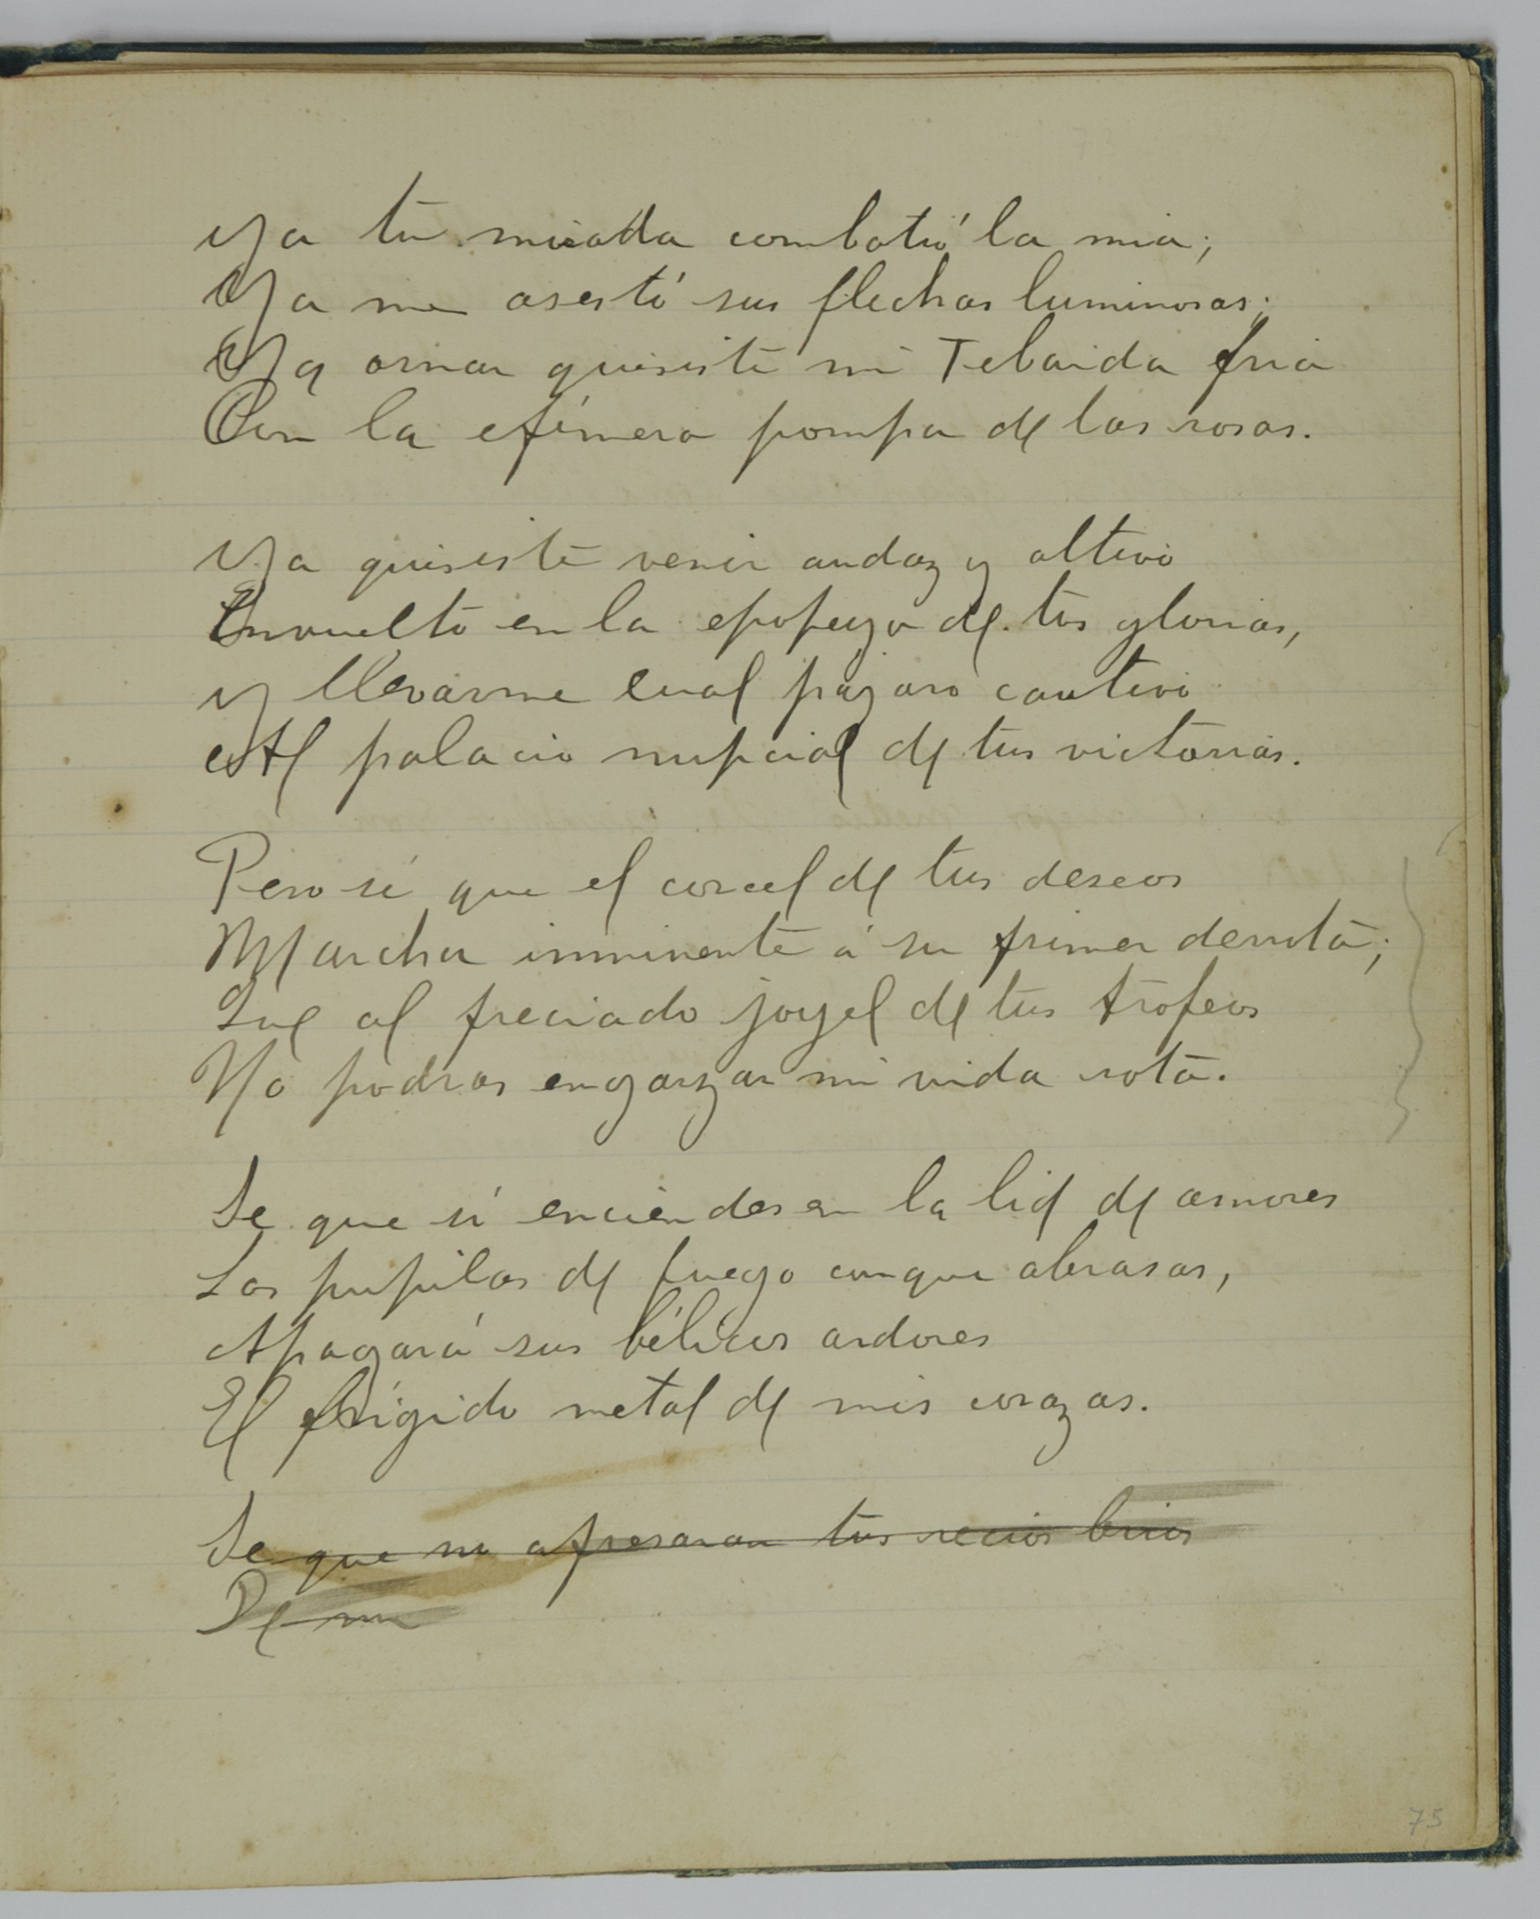 Ya tu mirada combatió la mia;
Ya me asestó sus flechas luminosas;
Ya ornar quisiste mi Tebaida fria
Con la efímera pompa de las rosas.
Ya quisiste venir audaz y altivo
Envuelto en la epopeya de tus glorias,
y llevarme cual pájaro cautivo
Al palacio nupcial de tus victorias.
Pero sé que el corcel de tus deseos
Marcha inminente á su primer derrota;
Que al preciado joyel de tus trofeos
No podras engarzar mi vida rota.
Se que si enciendes en la lid de amores
Las pupilas de fuego con que abrasas,
Apagará sus bélicos ardores
El frígido metal de mis corazas.
Se que no apresaran tus recios brios
De mi
75